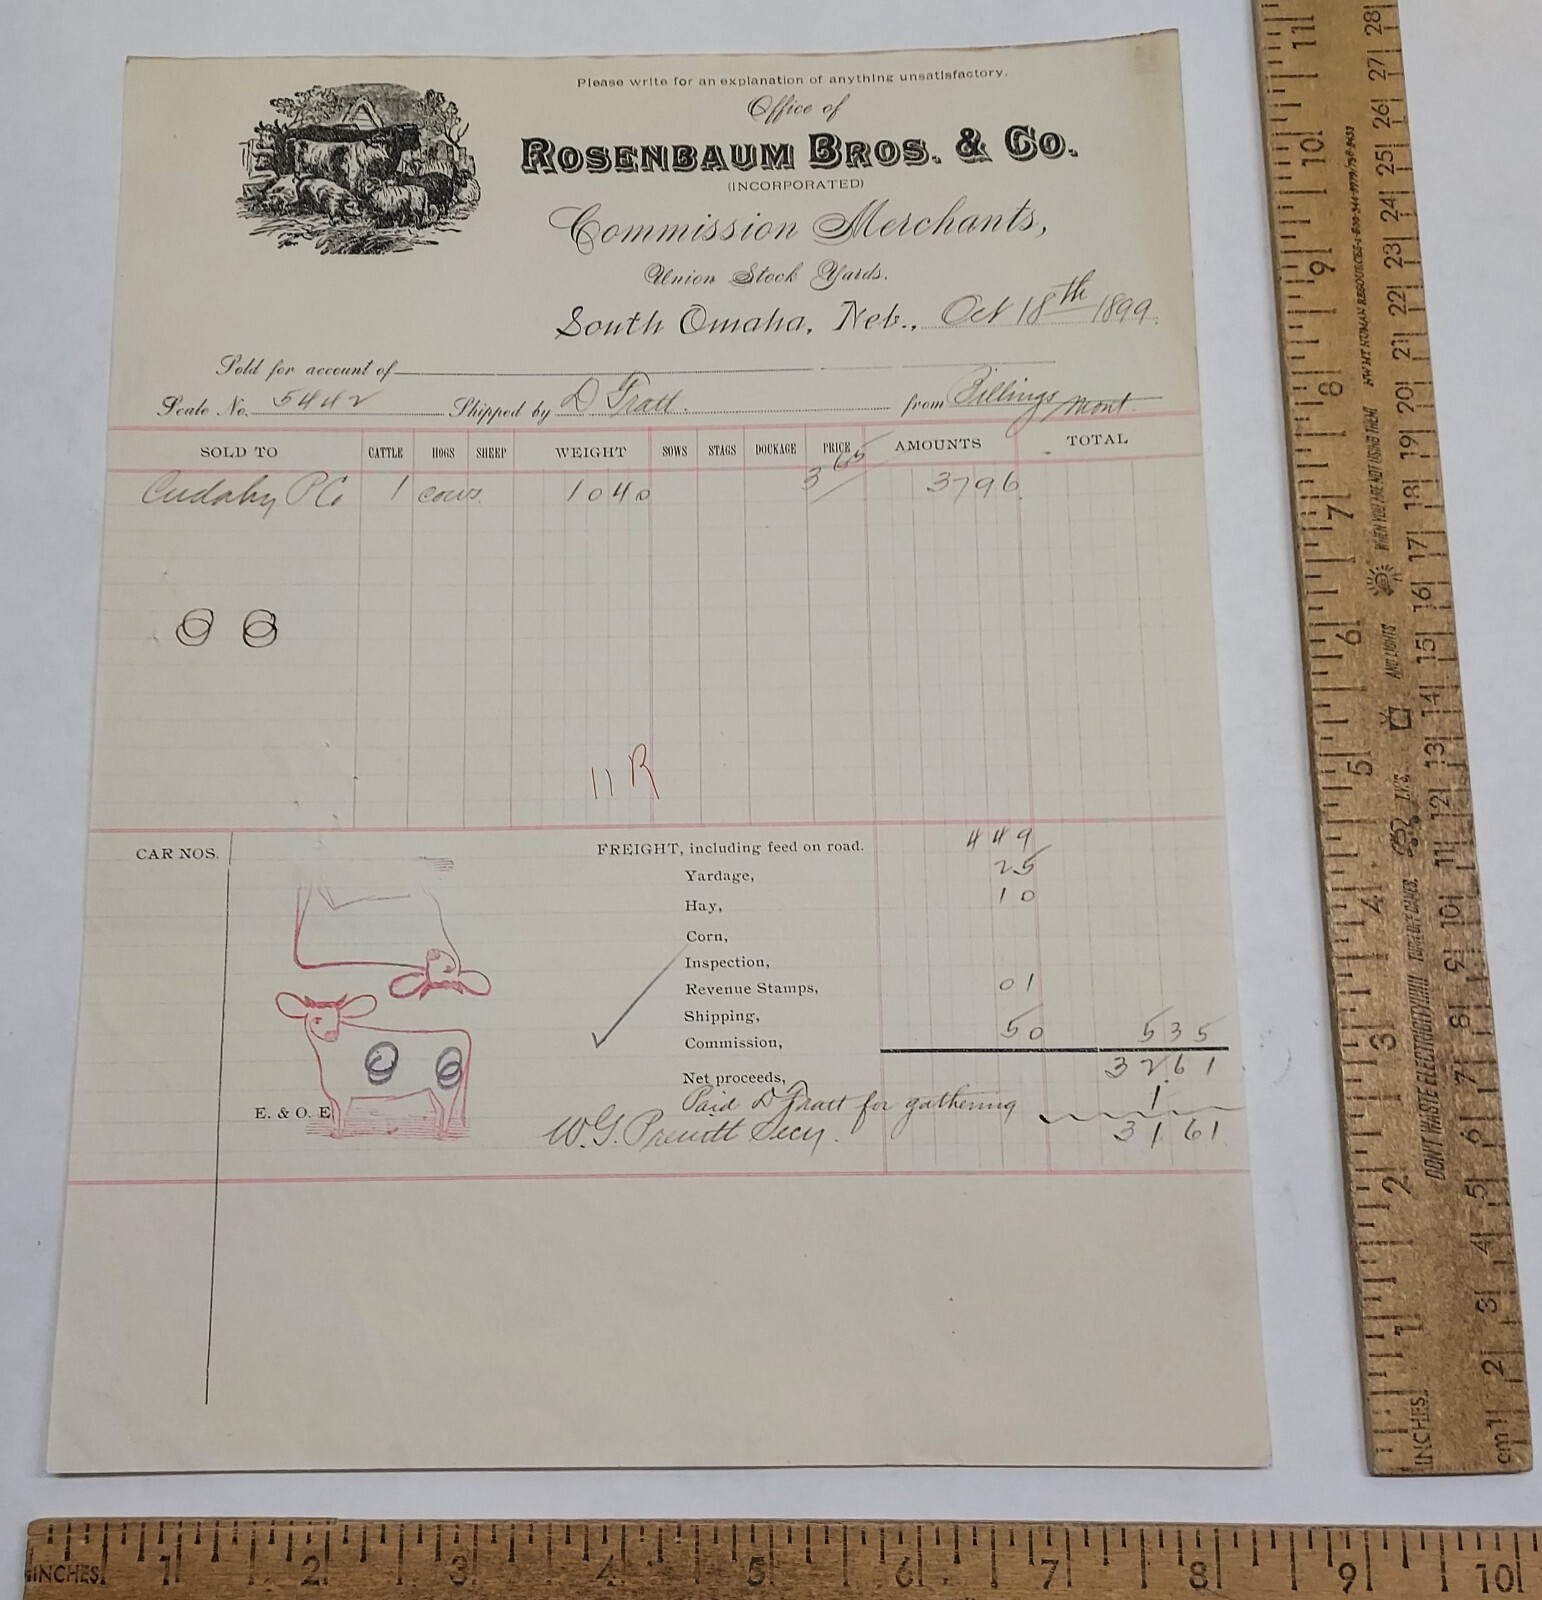 Please write for an explanation of anything unsatisfactory.
Office of
ROSENBAUM BROS. & CO.
(INCORPORATED)
Commission Merchants,
Union Stock Yards.
South Omaha, Neb., Oct 18th 1899.
Sold for account of
Scale No. 5442 Shipped by D Fratt. from Billings Mont.
SOLD TO CATTLE HOGS SHEEP WEIGHT SOWS STAGS DOCKAGE PRICE AMOUNTS TOTAL
Cudahy P Co 1 cows. 1040 3 65 3796
11 R
CAR NOS. FREIGHT, including feed on road. 449
Yardage, 25
Hay, 10
Corn,
Inspection,
Revenue Stamps, 01
Shipping,
Commission, 50 535
Net proceeds, 3261
Paid D Fratt for gathering 1
E. & O. E. W.G. Preuitt Secy. 3161
INCHES 1 2 3 4 5 6 7 8 9 10 11
cm 1 2 3 4 5 6 7 8 9 10 11 12 13 14 15 16 17 18 19 20 21 22 23 24 25 26 27 28
DON'T WASTE ELECTRICITY!!!!!! TURN OFF GAMES, T.V.'S, AND LIGHTS WHEN YOU ARE NOT USING THEM
INCHES 1 2 3 4 5 6 7 8 9 10